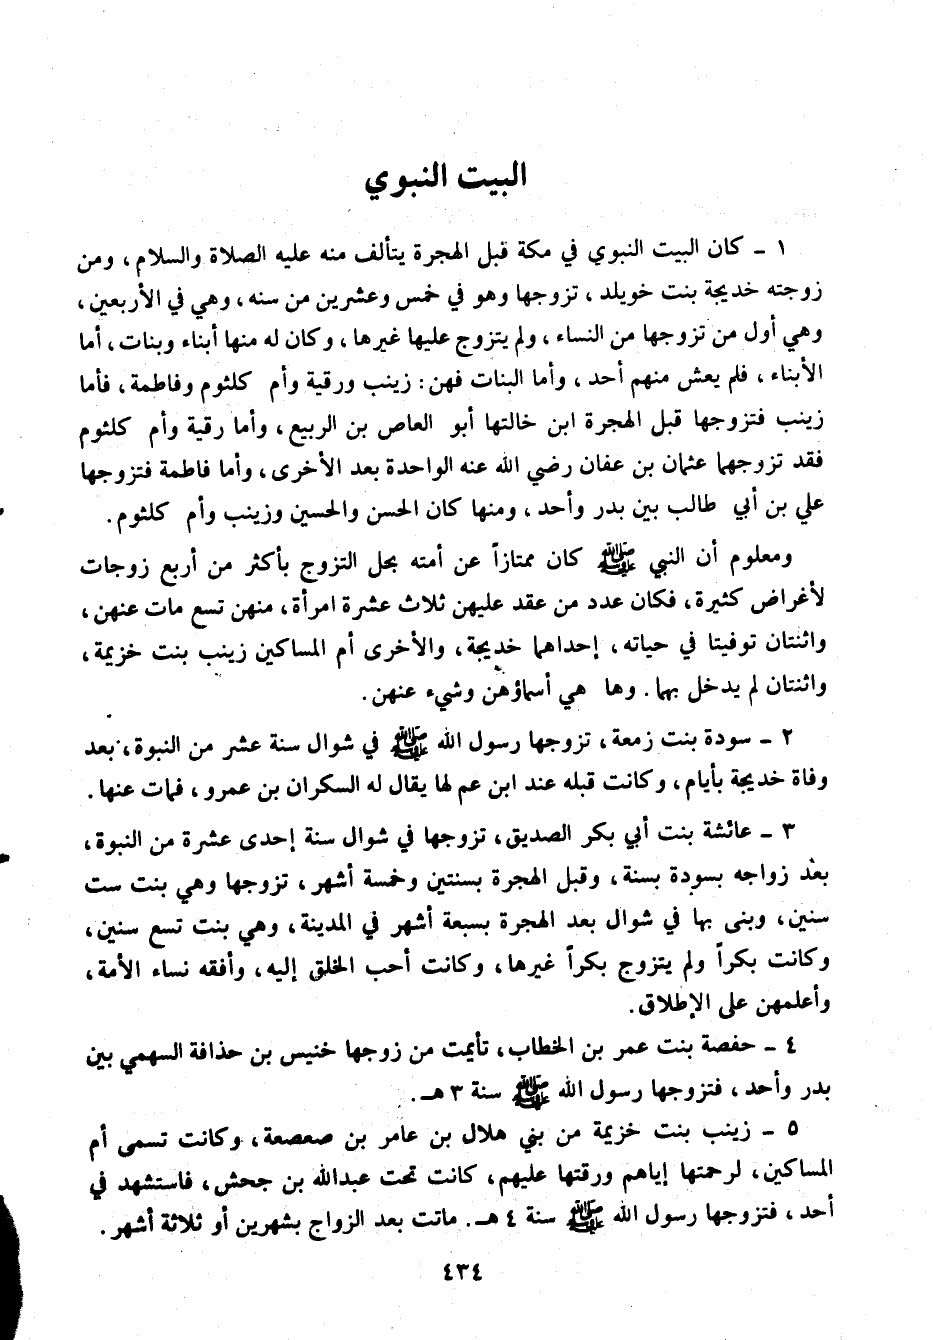 البيت النبوي
١ - كان البيت النبوي في مكة قبل الهجرة يتألف منه عليه الصلاة والسلام ، ومن
زوجته خديجة بنت خويلد ، تزوجها وهو في خمس وعشرين من سنه ، وهي في الأربعين ،
وهي أول من تزوجها من النساء ، ولم يتزوج عليها غيرها ، وكان له منها أبناء وبنات ، أما
الأبناء ، فلم يعش منهم أحد ، وأما البنات فهن : زينب ورقية وأم كلثوم وفاطمة ، فأما
زينب فتزوجها قبل الهجرة ابن خالتها أبو العاص بن الربيع ، وأما رقية وأم كلثوم
فقد تزوجهما عثمان بن عفان رضي الله عنه الواحدة بعد الأخرى ، وأما فاطمة فتزوجها
علي بن أبي طالب بين بدر وأحد ، ومنها كان الحسن والحسين وزينب وأم كلثوم .
ومعلوم أن النبي ﷺ كان ممتازاً عن أمته بحل التزوج بأكثر من أربع زوجات
لأغراض كثيرة ، فكان عدد من عقد عليهن ثلاث عشرة امرأة ، منهن تسع مات عنهن ،
واثنتان توفيتا في حياته ، إحداهما خديجة ، والأخرى أم المساكين زينب بنت خزيمة ،
واثنتان لم يدخل بهما . وها هي أسماؤهن وشيء عنهن .
٢ - سودة بنت زمعة ، تزوجها رسول الله ﷺ في شوال سنة عشر من النبوة ، بعد
وفاة خديجة بأيام ، وكانت قبله عند ابن عم لها يقال له السكران بن عمرو ، فمات عنها .
٣ - عائشة بنت أبي بكر الصديق ، تزوجها في شوال سنة إحدى عشرة من النبوة ،
بعد زواجه بسودة بسنة ، وقبل الهجرة بسنتين وخمسة أشهر ، تزوجها وهي بنت ست
سنين ، وبنى بها في شوال بعد الهجرة بسبعة أشهر في المدينة ، وهي بنت تسع سنين ،
وكانت بكراً ولم يتزوج بكراً غيرها ، وكانت أحب الخلق إليه ، وأفقه نساء الأمة ،
وأعلمهن على الإطلاق .
٤ - حفصة بنت عمر بن الخطاب ، تأيمت من زوجها خنيس بن حذافة السهمي بين
بدر وأحد ، فتزوجها رسول الله ﷺ سنة ٣ هـ .
٥ - زينب بنت خزيمة من بني هلال بن عامر بن صعصعة ، وكانت تسمى أم
المساكين ، لرحمتها إياهم ورقتها عليهم ، كانت تحت عبدالله بن جحش ، فاستشهد في
أحد ، فتزوجها رسول الله ﷺ سنة ٤ هـ . ماتت بعد الزواج بشهرين أو ثلاثة أشهر .
٤٣٤